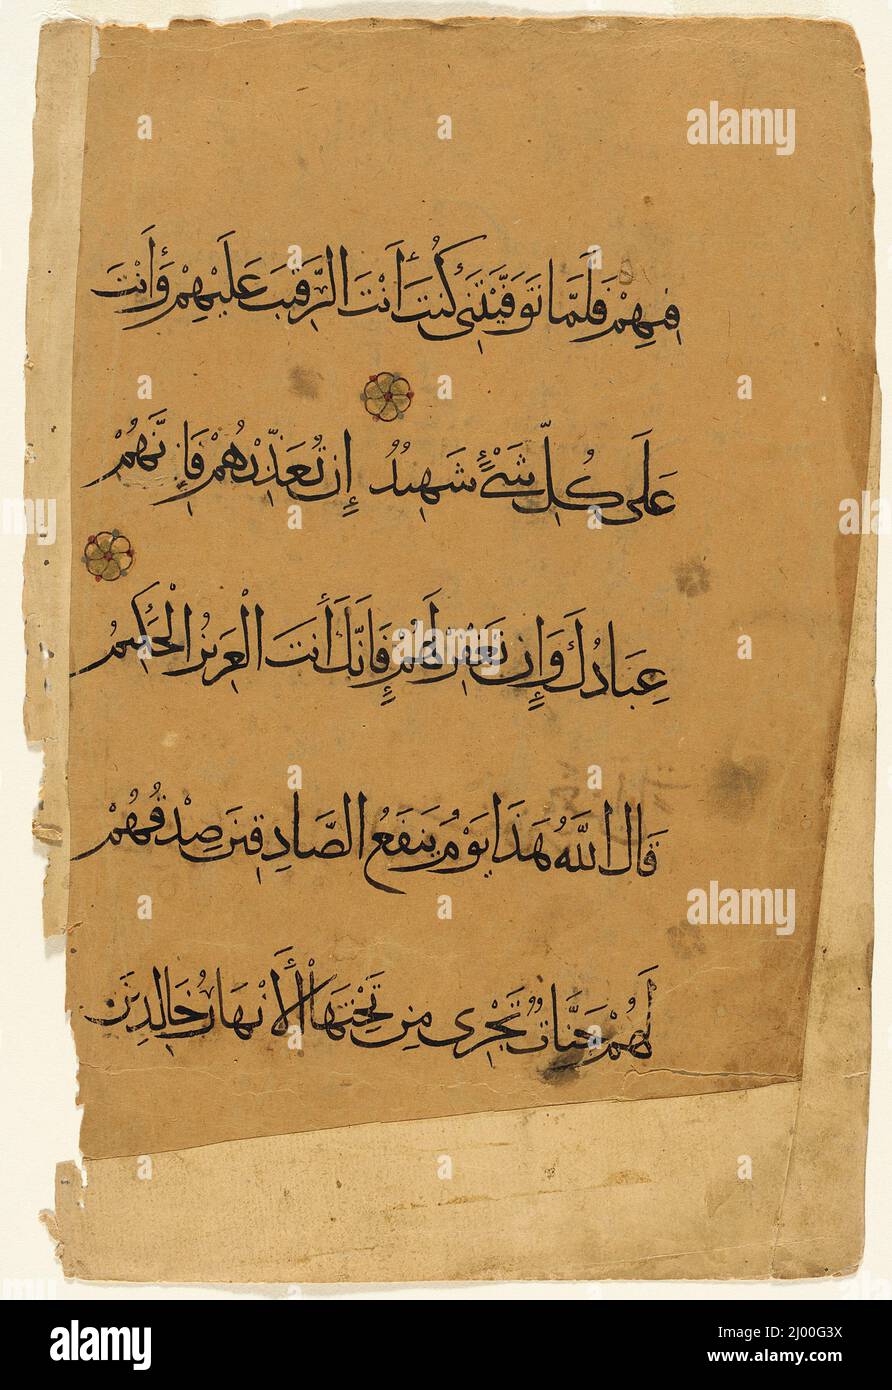 فِيهِمْ فَلَمَّا تَوَفَّيْتَنِي كُنتَ أَنْتَ الرَّقِيبَ عَلَيْهِمْ وَأَنْتَ
عَلَى كُلِّ شَيْءٍ شَهِيدٌ إِن تُعَذِّبْهُمْ فَإِنَّهُمْ
عِبَادُكَ وَإِن تَغْفِرْ لَهُمْ فَإِنَّكَ أَنتَ الْعَزِيزُ الْحَكِيمُ
قَالَ اللَّهُ هَذَا يَوْمُ يَنفَعُ الصَّادِقِينَ صِدْقُهُمْ
لَهُمْ جَنَّاتٌ تَجْرِي مِن تَحْتِهَا الْأَنْهَارُ خَالِدِينَ
a a alamy
a a a
a a a
a a a
a a alamy
a a a
alamy
Image ID: 2J00G3X
www.alamy.com